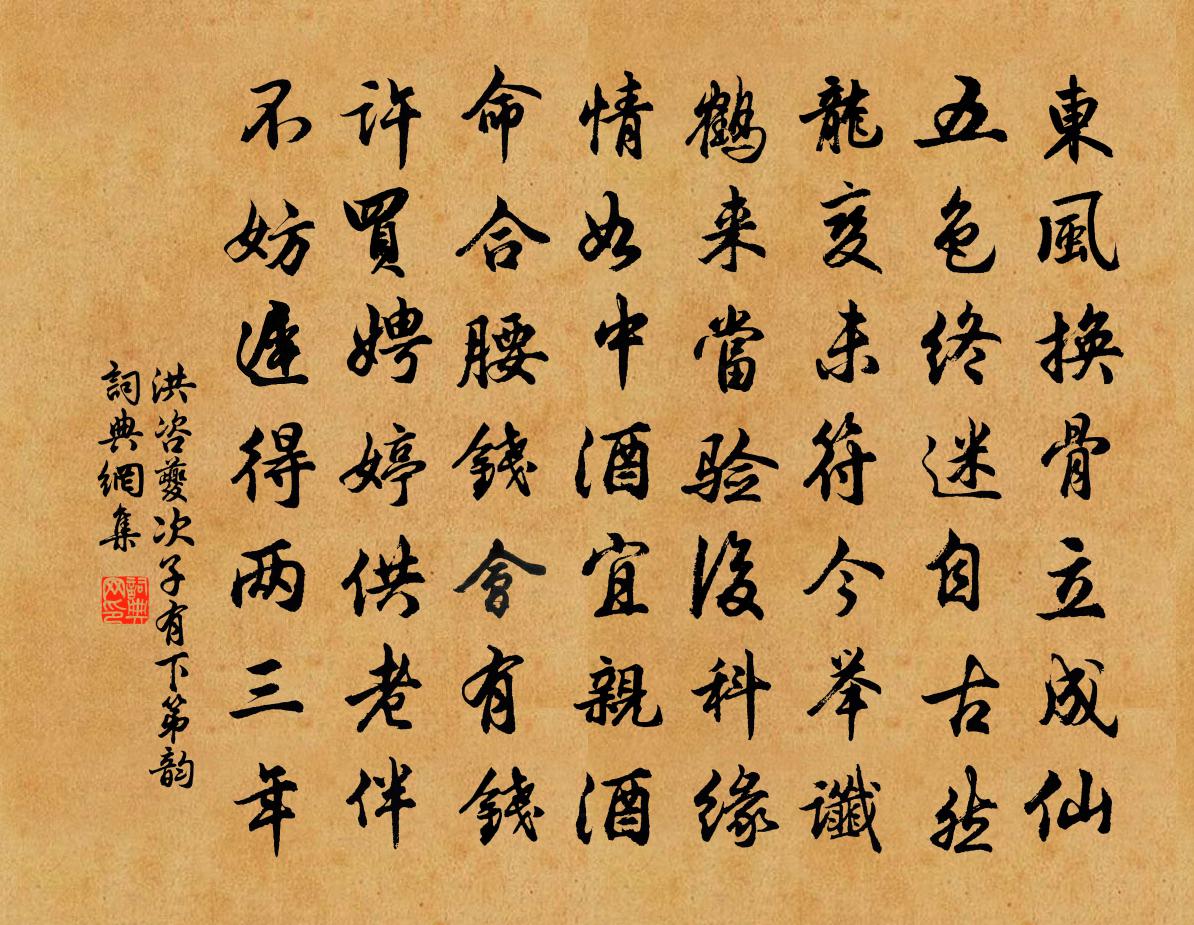 東風換骨立成仙
五色终迷自古然
龍变未符今举讖
鶴来當验後科缘
情如中酒宜親酒
命合腰錢會有錢
許買娉婷供老伴
不妨遲得两三年
洪咨夔次子有下第韵
詞典網集
詞典网印